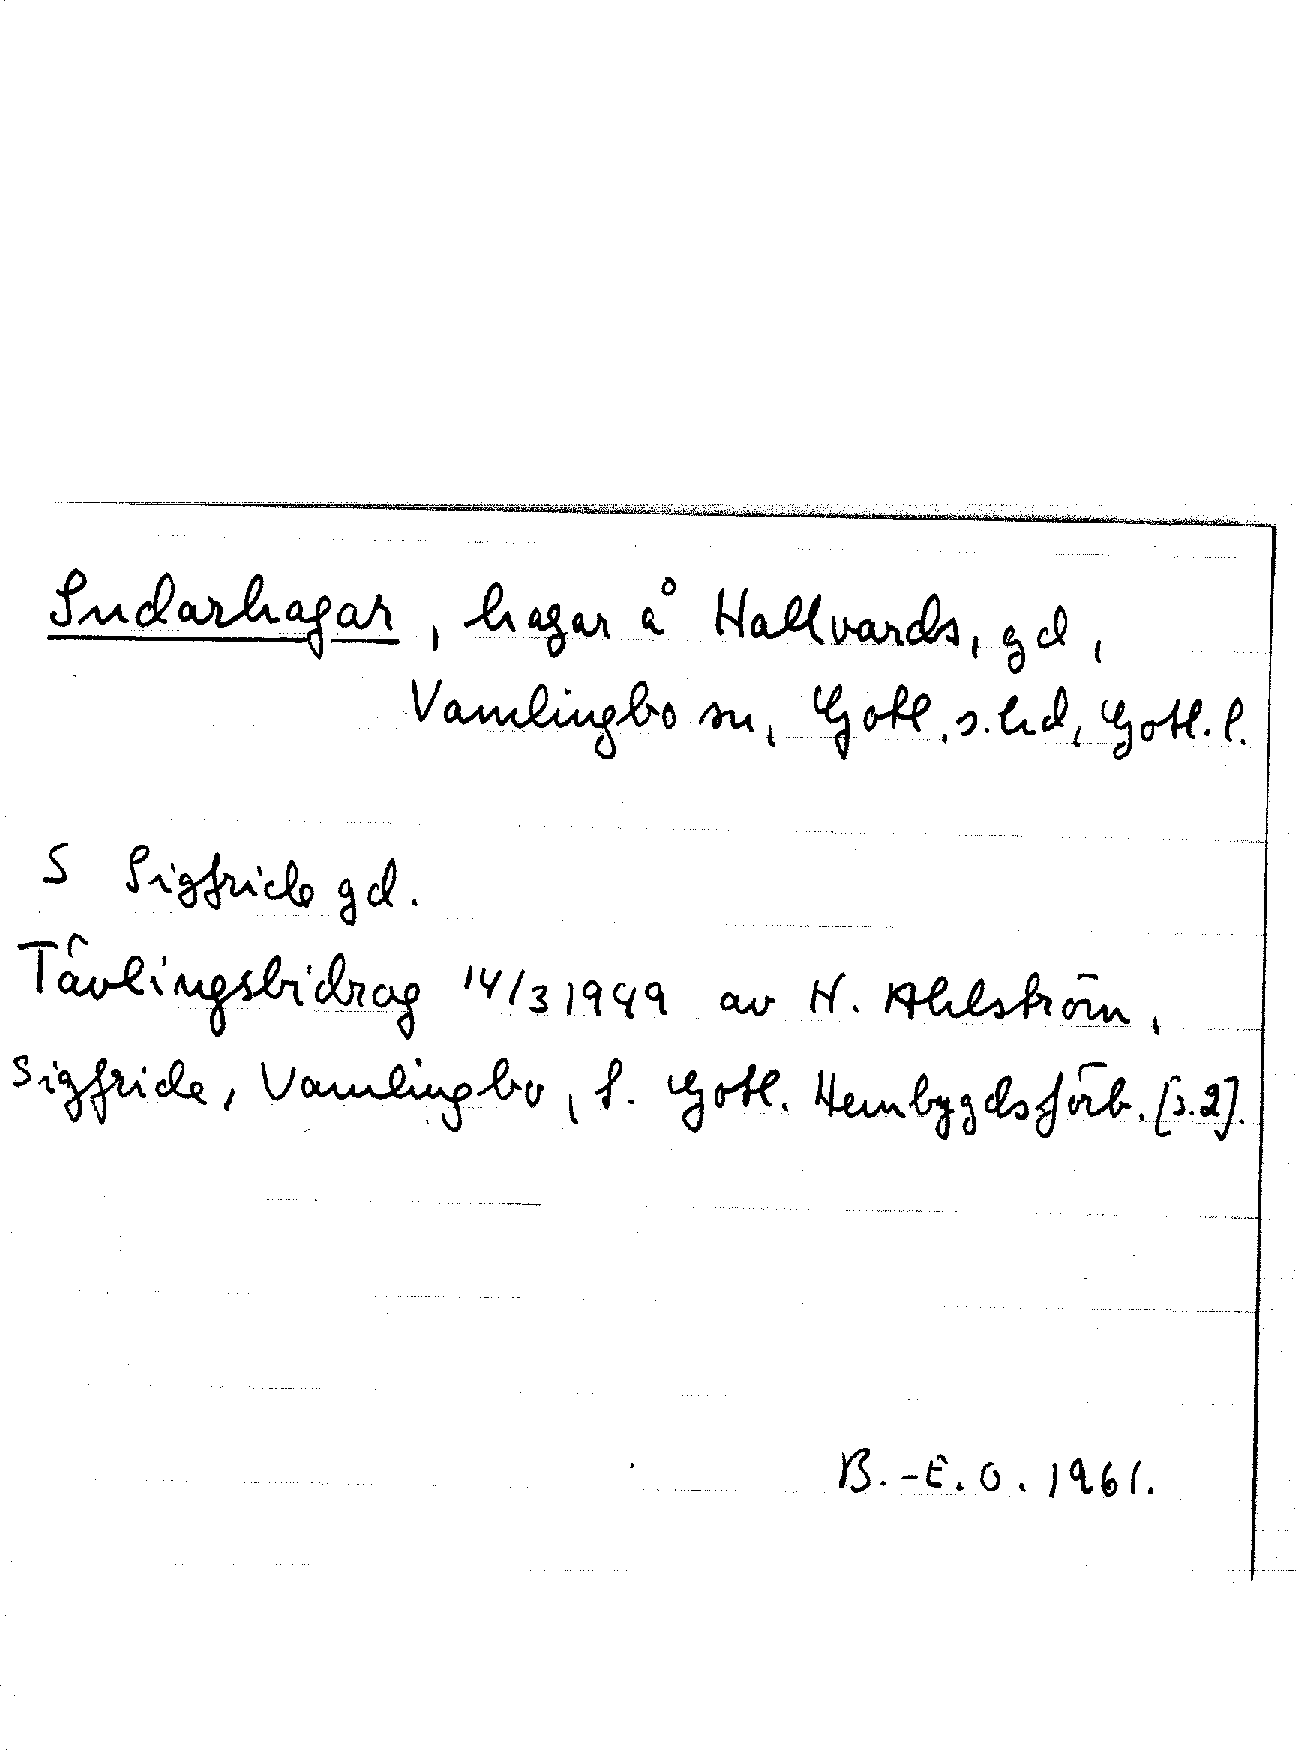 Sudarhagar, hagar å Hallvards, gd,
Vamlingbo sn, Gotl. s. hd, Gotl. l.
S Sigfride gd.
Tävlingsbidrag 14/3 1949 av H. Ahlström,
Sigfride, Vamlingbo, f. Gotl. Hembygdsförb. [s.2].
B.-E.O. 1961.